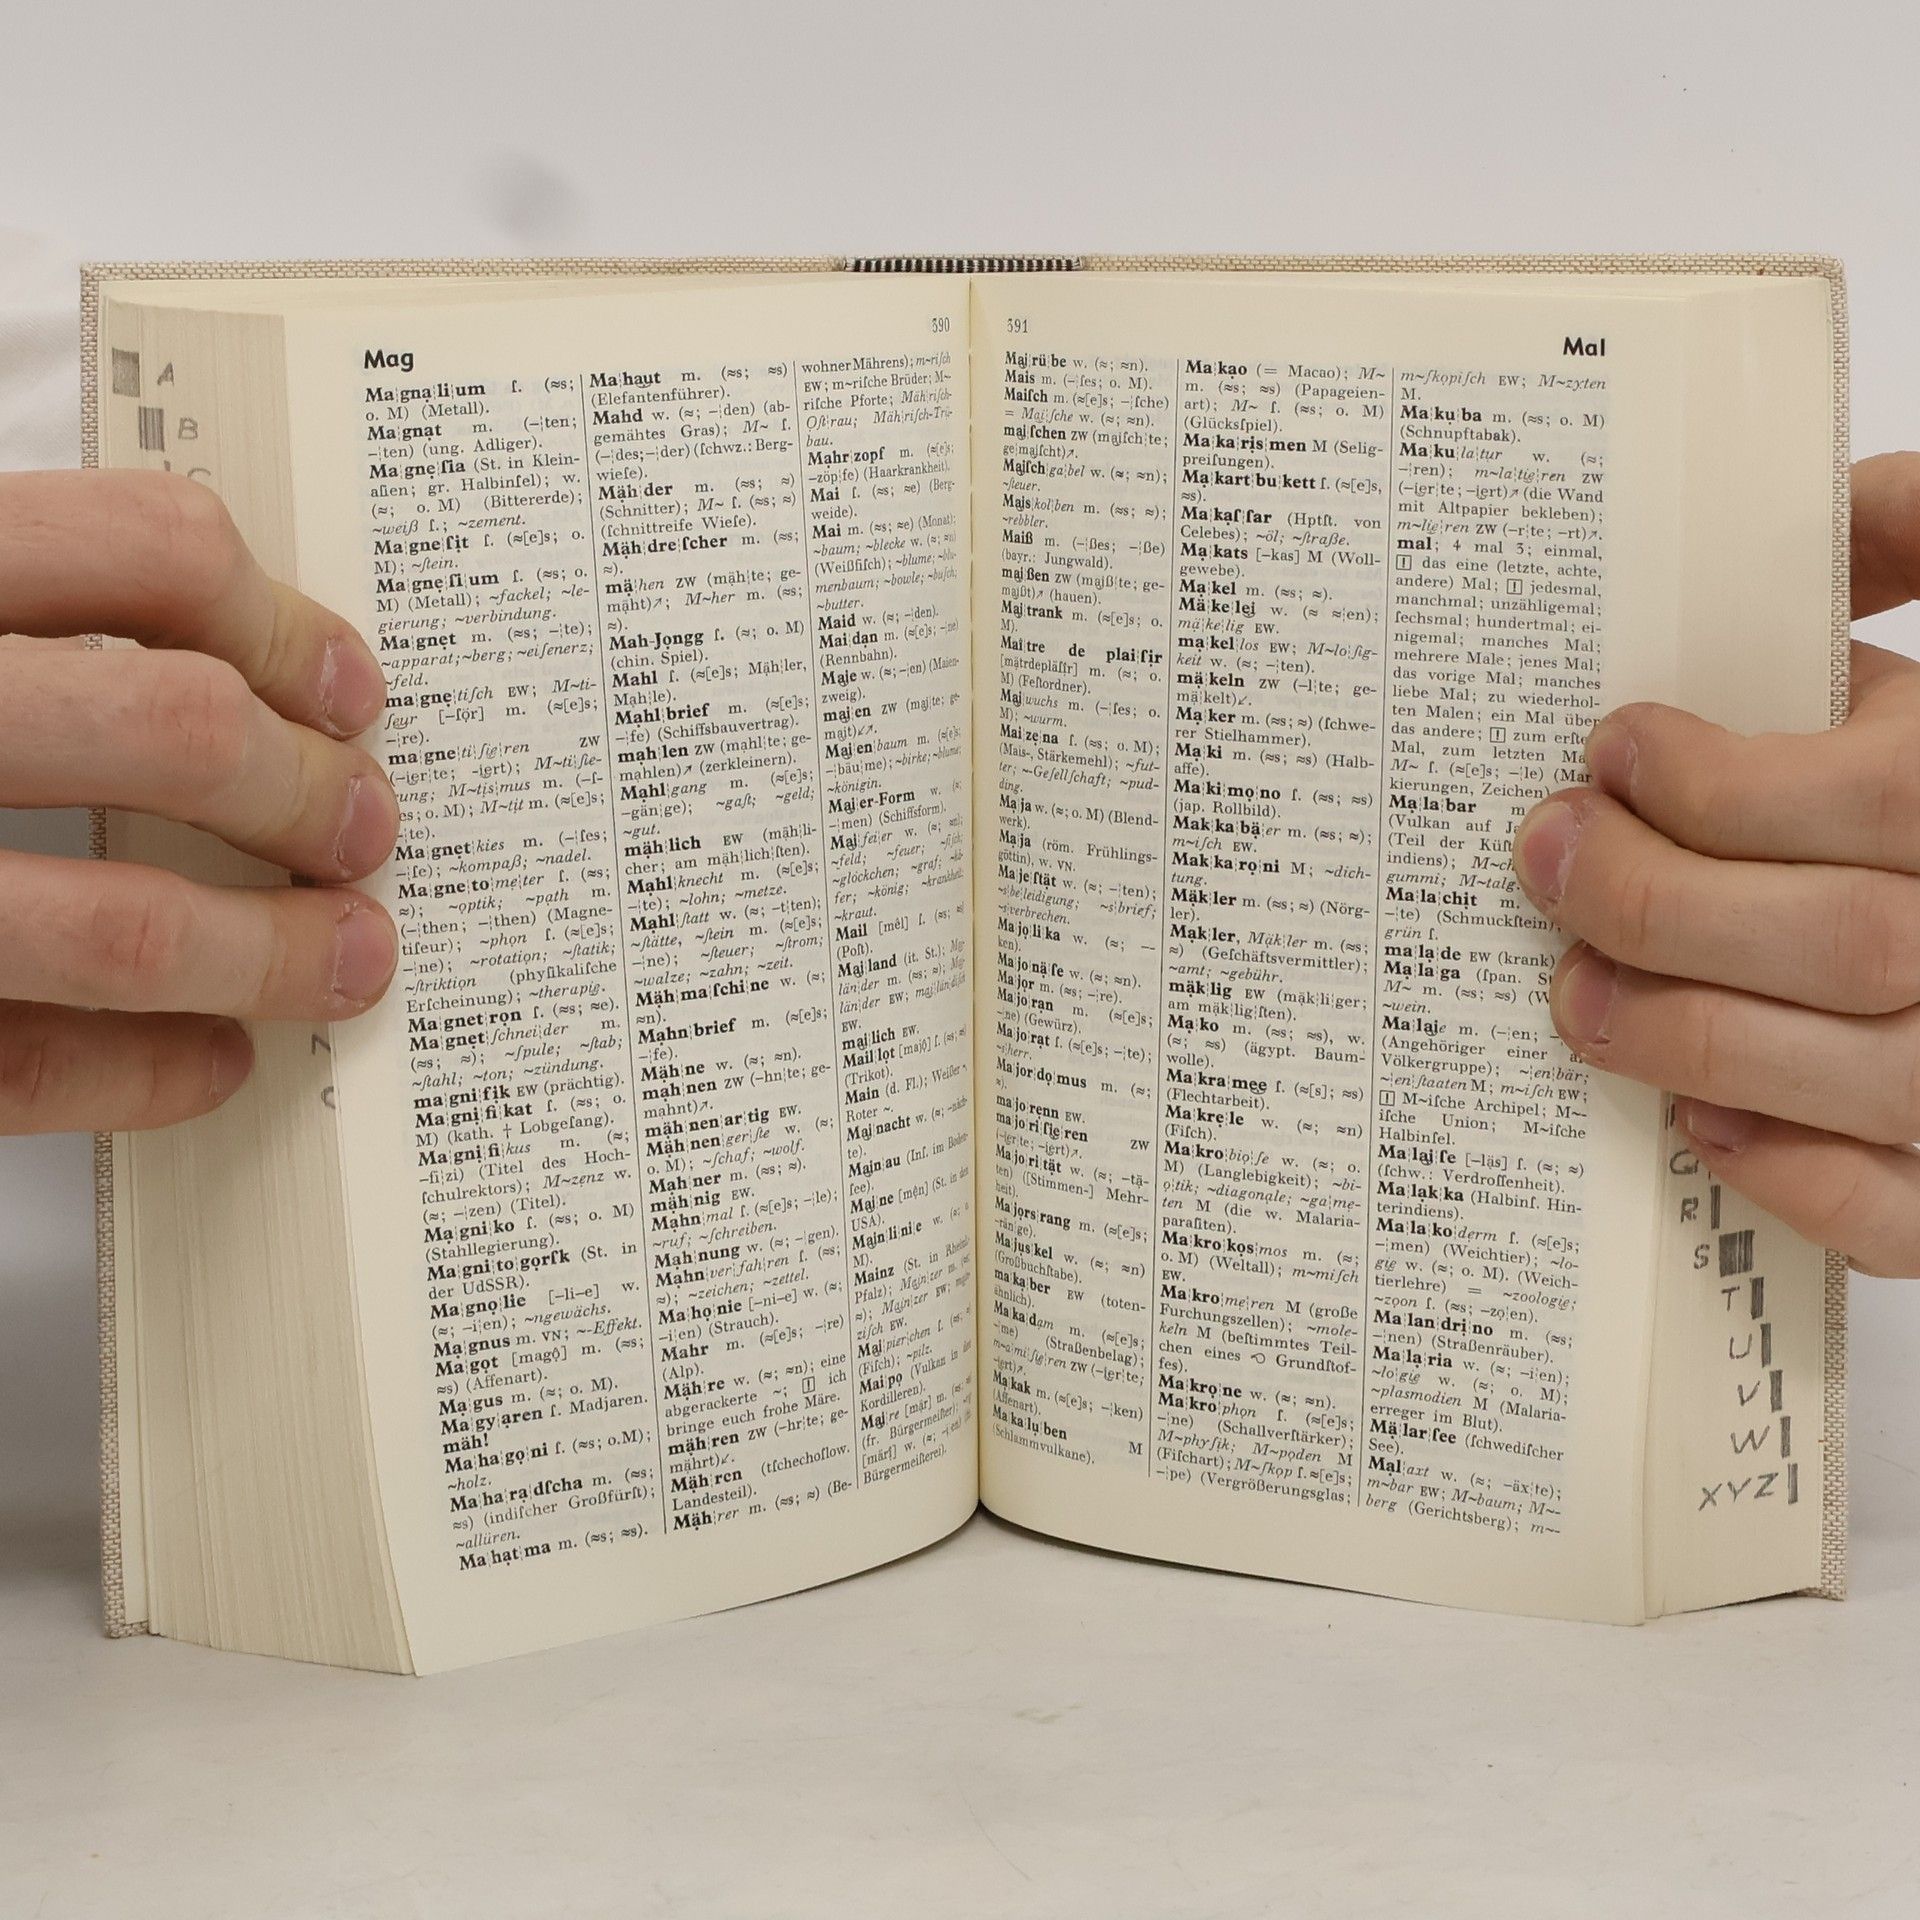 A
B
390
Mag
Ma¦gna¦li¦um ſ. (≈s;
o. M) (Metall).
Ma¦gnat m. (–¦ten;
–¦ten) (ung. Adliger).
Ma¦gne¦ſia (St. in Klein-
aſien; gr. Halbinſel); w.
(≈; o. M) (Bittererde);
~weiß ſ.; ~zement.
Ma¦gne¦ſit ſ. (≈[e]s; o.
M); ~ſtein.
Ma¦gne¦ſi¦um ſ. (≈s; o.
M) (Metall); ~fackel; ~le-
gierung; ~verbindung.
Ma¦gnet m. (≈s; –¦te);
~apparat; ~berg; ~eiſenerz;
~feld.
ma¦gne¦tiſch EW; M~ti-
ſeur [–ſör] m. (≈[e]s;
–¦re).
ma¦gne¦ti¦ſie¦ren ZW
(–¦ier¦te; –¦iert); M~ti¦ſie-
rung; M~tis¦mus m. (–ſ-
es; o. M); M~tit m. (≈[e]s;
–¦te).
Ma¦gnet¦kies m. (–¦ſes;
–¦ſe); ~kompaß; ~nadel.
Ma¦gne¦to¦me¦ter ſ. (≈s;
≈); ~optik; ~path m.
(–¦then; –¦then) (Magne-
tiſeur); ~phon ſ. (≈[e]s;
–¦ne); ~rotation; ~ſtatik;
~ſtriktion (phyſikaliſche
Erſcheinung); ~therapie.
Ma¦gnet¦ron ſ. (≈s; ≈e).
Ma¦gnet¦ſchnei¦der m.
(≈s; ≈); ~ſpule; ~ſtab;
~ſtahl; ~ton; ~zündung.
ma¦gni¦fik EW (prächtig).
Ma¦gni¦fi¦kat ſ. (≈s; o.
M) (kath. † Lobgeſang).
Ma¦gni¦fi¦kus m. (≈;
–ſi¦zi) (Titel des Hoch-
ſchulrektors); M~zenz w.
(≈; –¦zen) (Titel).
Ma¦gni¦ko ſ. (≈s; o. M)
(Stahllegierung).
Ma¦gni¦to¦gorſk (St. in
der UdSSR).
Ma¦gno¦lie [–li–e] w.
(≈; –¦i¦en); ~ngewächs.
Ma¦gnus m. VN; ~-Effekt.
Ma¦got [magộ] m. (≈s;
≈s) (Affenart).
Ma¦gus m. (≈; o. M).
Ma¦gy¦aren ſ. Madjaren.
mäh!
Ma¦ha¦go¦ni ſ. (≈s; o.M);
~holz.
Ma¦ha¦ra¦dſcha m. (≈s;
≈s) (indiſcher Großfürſt);
~allüren.
Ma¦hat¦ma m. (≈s; ≈s).
Ma¦haut m. (≈s; ≈s)
(Elefantenführer).
Mahd w. (≈; –¦den) (ab-
gemähtes Gras); M~ ſ.
(–¦des;–¦der) (ſchwz.: Berg-
wieſe).
Mäh¦der m. (≈s; ≈)
(Schnitter); M~ ſ. (≈s; ≈)
(ſchnittreife Wieſe).
Mäh¦dre¦ſcher m. (≈s;
≈).
mä¦hen ZW (mäh¦te; ge-
mäht)↗; M~her m. (≈s;
≈).
Mah-Jongg ſ. (≈; o. M)
(chin. Spiel).
Mahl ſ. (≈[e]s; Mäh¦ler,
Mah¦le).
Mahl¦brief m. (≈[e]s;
–¦fe) (Schiffsbauvertrag).
mah¦len ZW (mahl¦te; ge-
mahlen)↗ (zerkleinern).
Mahl¦gang m. (≈[e]s;
–gän¦ge); ~gaſt; ~geld;
~gut.
mäh¦lich EW (mäh¦li-
cher; am mäh¦lich¦ſten).
Mahl¦knecht m. (≈[e]s;
–¦te); ~lohn; ~metze.
Mahl¦ſtatt w. (≈; –t¦ten);
~ſtätte, ~ſtein m. (≈[e]s;
–¦ne); ~ſteuer; ~ſtrom;
~walze; ~zahn; ~zeit.
Mäh¦ma¦ſchi¦ne w. (≈;
≈n).
Mahn¦brief m. (≈[e]s;
–¦fe).
Mäh¦ne w. (≈; ≈n).
mah¦nen ZW (–hn¦te; ge-
mahnt)↗.
mäh¦nen¦ar¦tig EW.
Mäh¦nen¦ger¦ſte w. (≈;
o. M); ~ſchaf; ~wolf.
Mah¦ner m. (≈s; ≈).
mäh¦nig EW.
Mahn¦mal ſ. (≈[e]s; –¦le);
~ruf; ~ſchreiben.
Mah¦nung w. (≈; –¦gen).
Mahn¦ver¦fah¦ren ſ. (≈s;
≈); ~zeichen; ~zettel.
Ma¦ho¦nie [–ni–e] w. (≈;
–i¦en) (Strauch).
Mahr m. (≈[e]s; –¦re)
(Alp).
Mäh¦re w. (≈; ≈n); eine
abgerackerte ~; ! ich
bringe euch frohe Märe.
mäh¦ren ZW (–hr¦te; ge-
mährt)↙.
Mäh¦ren (tſchechoſlow.
Landesteil).
Mäh¦rer m. (≈s; ≈) (Be-
wohner Mährens); m~riſch
EW; m~riſche Brüder; M~
riſche Pforte; Mäh¦riſch-
Oſt¦rau; Mäh¦riſch-Trü-
bau.
Mahr¦zopf m. (≈[e]s;
–zöp¦fe) (Haarkrankheit).
Mai ſ. (≈s; ≈e) (Berg-
weide).
Mai m. (≈s; ≈e) (Monat);
~baum; ~blecke w. (≈; ≈n)
(Weißfiſch); ~blume; ~blu-
menbaum; ~bowle; ~buſch;
~butter.
Maid w. (≈; –¦den).
Mai¦dan m. (≈[e]s; –¦ne)
(Rennbahn).
Maie w. (≈; –¦en) (Maien-
zweig).
mai¦en ZW (mai¦te; ge-
mait)↙↗.
Mai¦en¦baum m. (≈[e]s;
–¦bäu¦me); ~birke; ~blume;
~königin.
Mai¦er-Form w. (≈;
–¦men) (Schiffsform).
Mai¦fei¦er w. (≈; ≈n);
~feld; ~feuer; ~fiſch;
~glöckchen; ~graf; ~kä-
fer; ~könig; ~krankheit;
~kraut.
Mail [mêl] ſ. (≈s; ≈)
(Poſt).
Mai¦land (it. St.); Mai-
län¦der m. (≈s; ≈); Mai-
län¦der EW; mai¦län¦diſch
EW.
mai¦lich EW.
Mail¦lot [majộ] ſ. (≈s; ≈s)
(Trikot).
Main (d. Fl.); Weißer ~,
Roter ~.
Mai¦nacht w. (≈; –näch-
te).
Main¦au (Inſ. im Boden-
ſee).
Maine [mẹn] (St. in den
USA).
Main¦li¦nie w. (≈; o.
M).
Mainz (St. in Rheinl.-
Pfalz); Main¦zer m. (≈s;
≈); Main¦zer EW; main-
ziſch EW.
Mai¦pier¦chen ſ. (≈s; ≈)
(Fiſch); ~pilz.
Mai¦po (Vulkan in den
Kordilleren).
Mai¦re [mär] m. (≈s; ≈s)
(fr. Bürgermeiſter);
[märi] w. (≈; –¦en)
Bürgermeiſterei).
391
Mal
Mai¦rü¦be w. (≈; ≈n).
Mais m. (–¦ſes; o. M).
Maiſch m. (≈[e]s; –¦ſche)
= Mai¦ſche w. (≈; ≈n).
mai¦ſchen ZW (maiſch¦te;
ge¦maiſcht)↗.
Maiſch¦ga¦bel w. (≈; ≈n);
~ſteuer.
Mais¦kol¦ben m. (≈s; ≈);
~rebbler.
Maiß m. (–¦ßes; –¦ße)
(bayr.: Jungwald).
mai¦ßen ZW (maiß¦te; ge-
maißt)↗ (hauen).
Mai¦trank m. (≈[e]s; o.
M).
Maî¦tre de plai¦ſir
[mätrdepläſir] m. (≈; o.
M) (Feſtordner).
Mai¦wuchs m. (–¦ſes; o.
M); ~wurm.
Mai¦ze¦na ſ. (≈s; o. M);
(Mais-, Stärkemehl); ~fut-
ter; ~-Geſellſchaft; ~pud-
ding.
Ma¦ja w. (≈; o. M) (Blend-
werk).
Ma¦ja (röm. Frühlings-
göttin), w. VN.
Ma¦je¦ſtät w. (≈; –¦ten);
~sbeleidigung; ~sbrief;
~sverbrechen.
Ma¦jo¦li¦ka w. (≈; —
ken).
Ma¦jo¦nä¦ſe w. (≈; ≈n).
Ma¦jor m. (≈s; –¦re).
Ma¦jo¦ran m. (≈[e]s;
–¦ne) (Gewürz).
Ma¦jo¦rat ſ. (≈[e]s; –¦te);
~sherr.
Ma¦jor¦do¦mus m. (≈;
≈).
ma¦jo¦renn EW.
ma¦jo¦ri¦ſie¦ren ZW
(–¦ier¦te; –¦iert)↗.
Ma¦jo¦ri¦tät w. (≈; –tä-
ten) ([Stimmen-] Mehr-
heit).
Ma¦jors¦rang m. (≈[e]s;
–rän¦ge).
Ma¦jus¦kel w. (≈; ≈n)
(Großbuchſtabe).
ma¦ka¦ber EW (toten-
ähnlich).
Ma¦ka¦dam m. (≈[e]s;
–¦me) (Straßenbelag);
m~a¦mi¦ſie¦ren ZW (–¦ier¦te;
–¦iert)↗.
Ma¦kak m. (≈[e]s; –¦ken)
(Affenart).
Ma¦ka¦lu¦ben M
(Schlammvulkane).
Ma¦kao (= Macao); M~
m. (≈s; ≈s) (Papageien-
art); M~ ſ. (≈s; o. M)
(Glücksſpiel).
Ma¦ka¦ris¦men M (Selig-
preiſungen).
Ma¦kart¦bu¦kett ſ. (≈[e]s,
≈s).
Ma¦kaſ¦ſar (Hptſt. von
Celebes); ~öl; ~ſtraße.
Ma¦kats [–kas] M (Woll-
gewebe).
Ma¦kel m. (≈s; ≈).
Mä¦ke¦lei w. (≈ ≈¦en);
mä¦ke¦lig EW.
ma¦kel¦los EW; M~lo¦ſig-
keit w. (≈; –¦ten).
mä¦keln ZW (–l¦te; ge-
mä¦kelt)↙.
Ma¦ker m. (≈s; ≈) (ſchwe-
rer Stielhammer).
Ma¦ki m. (≈s; ≈s) (Halb-
affe).
Ma¦ki¦mo¦no ſ. (≈s; ≈s)
(jap. Rollbild).
Mak¦ka¦bä¦er m. (≈s; ≈);
m~iſch EW.
Mak¦ka¦ro¦ni M; ~dich-
tung.
Mäk¦ler m. (≈s; ≈) (Nörg-
ler).
Mak¦ler, Mäk¦ler m. (≈s;
≈) (Geſchäftsvermittler);
~amt; ~gebühr.
mäk¦lig EW (mäk¦li¦ger;
am mäk¦lig¦ſten).
Ma¦ko m. (≈s; ≈s), w.
(≈; ≈s) (ägypt. Baum-
wolle).
Ma¦kra¦mee ſ. (≈[s]; ≈s)
(Flechtarbeit).
Ma¦kre¦le w. (≈; ≈n)
(Fiſch).
Ma¦kro¦bio¦ſe w. (≈; o.
M) (Langlebigkeit); ~bi-
o¦tik; ~diagonale; ~ga¦me-
ten M (die w. Malaria-
paraſiten).
Ma¦kro¦kos¦mos m. (≈;
o. M) (Weltall); m~miſch
EW.
Ma¦kro¦me¦ren M (große
Furchungszellen); ~mole-
keln M (beſtimmtes Teil-
chen eines Grundſtof-
fes).
Ma¦kro¦ne w. (≈; ≈n).
Ma¦kro¦phon ſ. (≈[e]s;
–¦ne) (Schallverſtärker);
M~phy¦ſik; M~po¦den M
(Fiſchart); M~ſkop ſ. ≈[e]s;
–¦pe) (Vergrößerungsglas;
m~ſkopiſch EW; M~zyten
M.
Ma¦ku¦ba m. (≈s; o. M)
(Schnupftabak).
Ma¦ku¦la¦tur w. (≈;
–¦ren); m~la¦tie¦ren ZW
(–¦ier¦te; –¦iert)↗ (die Wand
mit Altpapier bekleben);
m~lie¦ren ZW (–r¦te; –rt)↗.
mal; 4 mal 3; einmal,
! das eine (letzte, achte,
andere) Mal; ! jedesmal,
manchmal; unzähligemal;
ſechsmal; hundertmal; ei-
nigemal; manches Mal;
mehrere Male; jenes Mal;
das vorige Mal; manches
liebe Mal; zu wiederhol-
ten Malen; ein Mal über
das andere; ! zum erſten
Mal, zum letzten
M~ ſ. (≈[e]s; –¦le) (Mar-
kierungen, Zeichen)
Ma¦la¦bar
(Vulkan auf
(Teil der
indiens);
gummi; M~talg.
Ma¦la¦chit m.
–¦te) (Schmuckſtein);
grün ſ.
ma¦la¦de EW (krank)
Ma¦la¦ga (ſpan.
M~ m. (≈s; ≈s)
~wein.
Ma¦laie m. (–¦en;
(Angehöriger einer
Völkergruppe); ~¦en¦bär;
~¦en¦ſtaaten M; m~iſch EW;
! M~iſche Archipel; M~-
iſche Union; M~iſche
Halbinſel.
Ma¦lai¦ſe [–läs] ſ. (≈; ≈)
(ſchw.: Verdroſſenheit).
Ma¦lak¦ka (Halbinſ. Hin-
terindiens).
Ma¦la¦ko¦derm ſ. (≈[e]s;
–¦men) (Weichtier); ~lo-
gie w. (≈; o. M). (Weich-
tierlehre) = ~zoologie;
~zoon ſ. (≈s; –zo¦en).
Ma¦lan¦dri¦no m. (≈s;
–¦nen) (Straßenräuber).
Ma¦la¦ria w. (≈; –¦i¦en);
~lo¦gie w. (≈; o. M);
~plasmodien M (Malaria-
erreger im Blut).
Mä¦lar¦ſee (ſchwediſcher
See).
Mal¦axt w. (≈; –äx¦te);
m~bar EW; M~baum; M~-
berg (Gerichtsberg); m~-
Q
R
S
T
U
V
W
XYZ